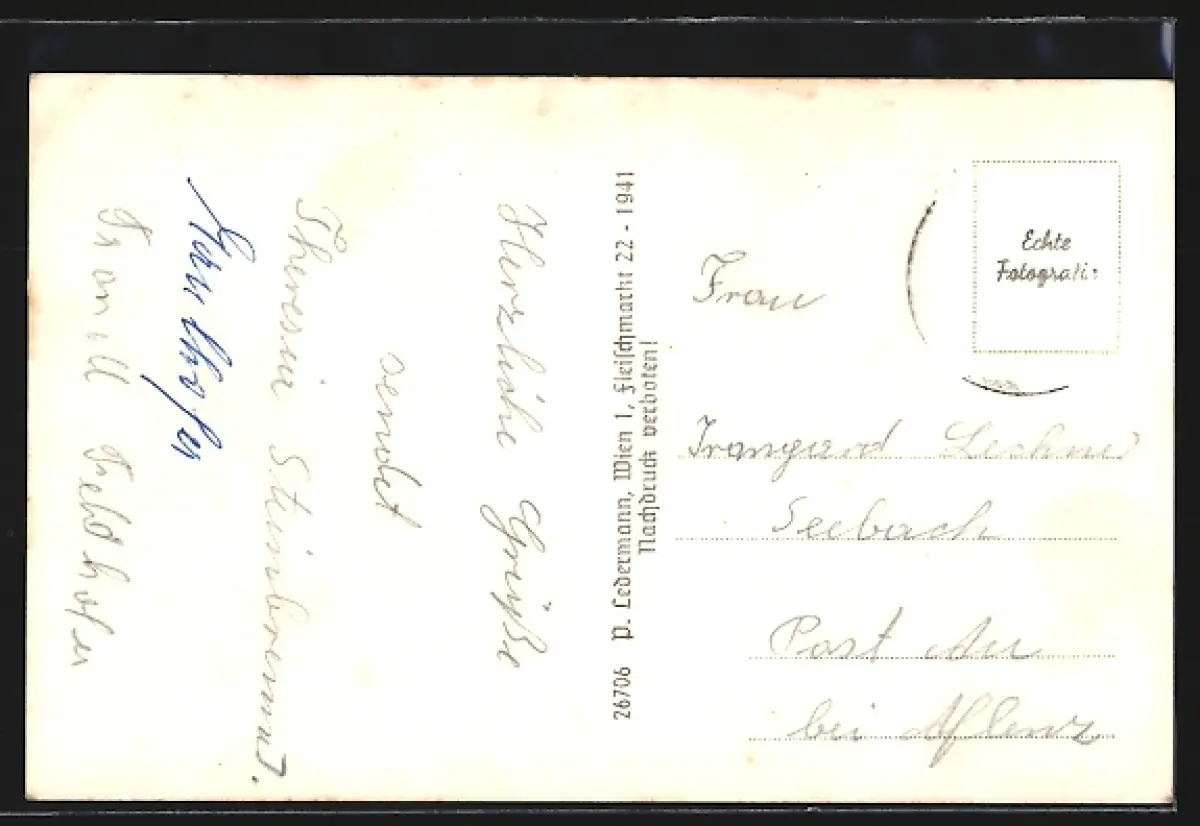 Herzliche Grüße
sendet
Theresia
Feldhofer
26706 P. Ledermann, Wien 1, Fleischmarkt 22 - 1941
Nachdruck verboten!
Echte
Fotografie
Frau
Irmgard Lechner
Seebach
Post Au
bei Aflenz